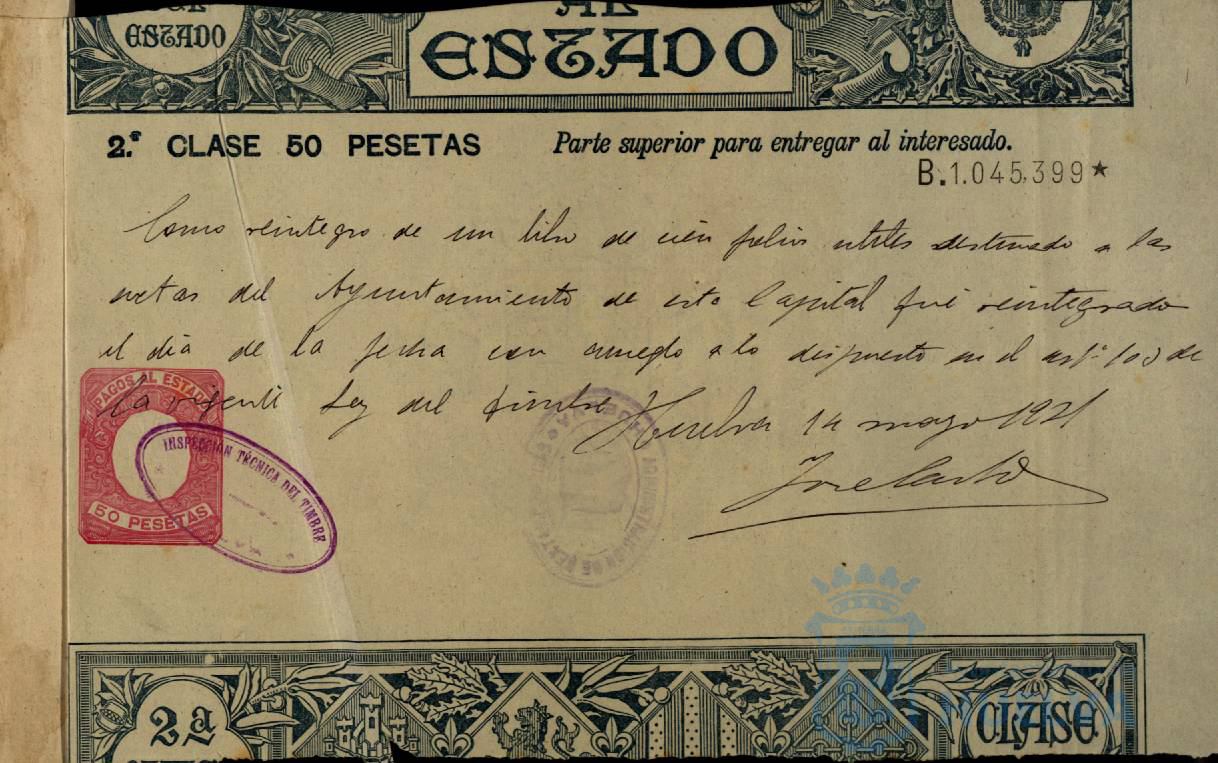 DEL
AL
ESTADO
ESTADO
2.ª CLASE 50 PESETAS
Parte superior para entregar al interesado.
B.1.045,399★
Como reintegro de un libro de cién folios utiles destinado a las
actas del Ayuntamiento de esta Capital fué reintegrado
el dia de la fecha con arreglo a lo dispuesto en el artº de
la vigente Ley del timbre Huelva 14 mayo 1921
PAGOS AL ESTADO
50 PESETAS
INSPECCIÓN TÉCNICA DEL TIMBRE
ADMINISTRACION DE
2ª
CLASE